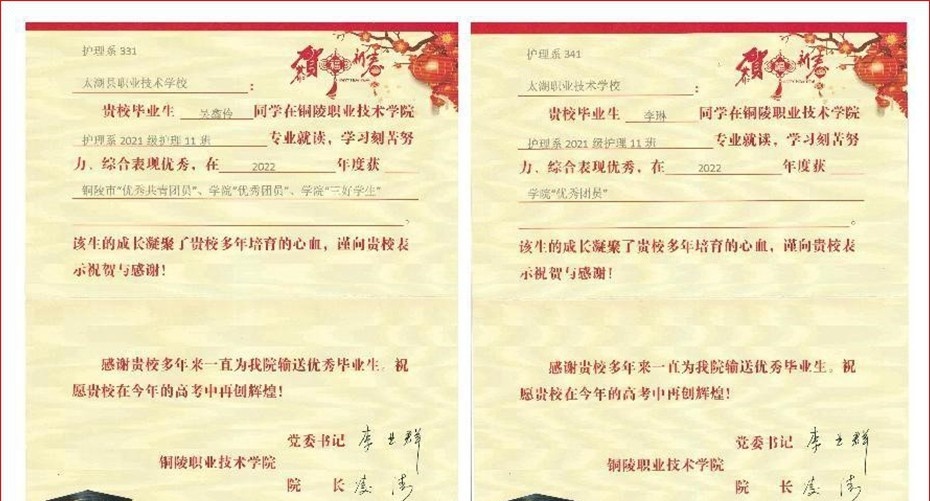 护理系 331
贺 新春
太湖县职业技术学校：
贵校毕业生 吴鑫伶 同学在铜陵职业技术学院
护理系 2021 级护理 11 班 专业就读，学习刻苦努
力、综合表现优秀，在 2022 年度获
铜陵市“优秀共青团员”、学院“优秀团员”、学院“三好学生”
。
该生的成长凝聚了贵校多年培育的心血，谨向贵校表
示祝贺与感谢！
感谢贵校多年来一直为我院输送优秀毕业生。祝
愿贵校在今年的高考中再创辉煌！
党委书记
铜陵职业技术学院
院 长
护理系 341
贺 新春
太湖职业技术学校：
贵校毕业生 李琳 同学在铜陵职业技术学院
护理系 2021 级护理 11 班 专业就读，学习刻苦努
力、综合表现优秀，在 2022 年度获
学院“优秀团员”
。
该生的成长凝聚了贵校多年培育的心血，谨向贵校表
示祝贺与感谢！
感谢贵校多年来一直为我院输送优秀毕业生。祝
愿贵校在今年的高考中再创辉煌！
党委书记
铜陵职业技术学院
院 长